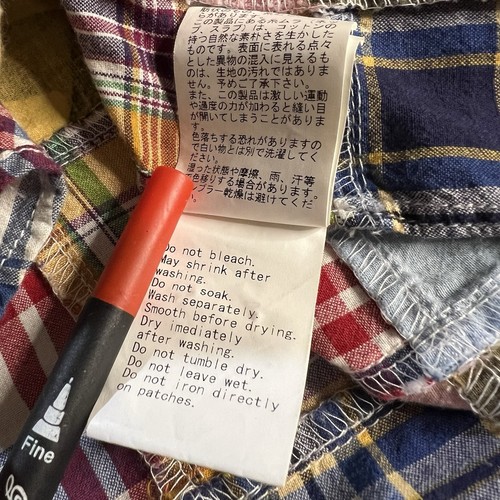 らがあります。
この製品にあるネムラ、
ブ、スラブ)は、コットンの
持つ自然な素朴さを生かした
ものです。表面に表れる点々
とした異物の混入に見えるも
のは、生地の汚れではありま
せん。予めご了承下さい。
また、この製品は激しい運動
や過度の力が加わると縫い目
が開いてしまうことがありま
す。
色落ちする恐れがありますの
で白い物とは別で洗濯してく
ださい。
湿った状態や摩擦、雨、汗等
色移りする場合があります。
ンブラー乾燥は避けてくだ
Do not bleach.
May shrink after
washing.
Do not soak.
Wash separately.
Smooth before drying.
Dry imediately
after washing.
Do not tumble dry.
Do not leave wet.
Do not iron directly
on patches.
Fine